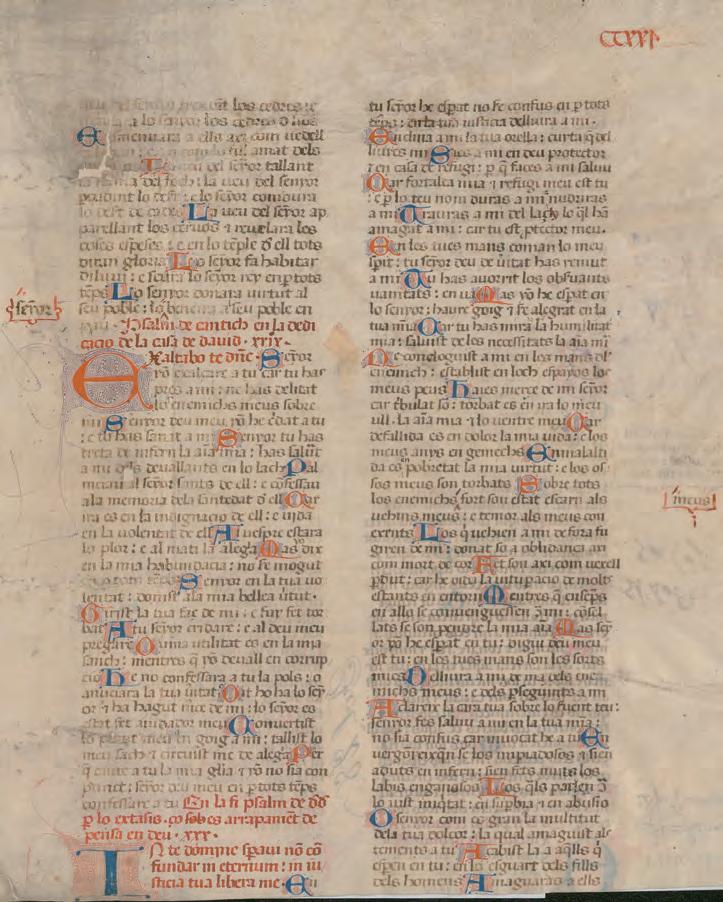 CCXXXI
del senyor trencant los cedres : e
a lo senyor los cedres d
E smenuzara a ells axi com vedell
amat dels
La veu del señor tallant
la flama del foch : la veu del senyor
lo desert de cades La veu del señor ap
parellant los ceruos : e reuelara los
coses espeses : e en lo temple d ell tots
diran gloria Lo señor fa habitar
diluui : e seura lo señor rey en p tots
temps Lo senyor donara virtut al
señor
seu poble : lo beneira a seu poble en
pau · Psalm de cantich en la dedi
cacio de la casa de dauid · xxix ·
Exaltabo te dñe · Señor
yo exalcare a tu car tu has
pres a mi : ne has delitat
los enemichs meus sobre
mi Senyor deu meu yo he cridat a tu
: e tu has sanat a mi Senyor tu has
treta de infern la aīa mia : has saluat
a mi dels deuallants en lo lach Psal
mejau al señor sants de ell : e cōfessau
a la memoria dela santedat d ell Car
ira es en la indignacio de ell : e vida
en la volentat de ell Al uespre estara
lo plor : e al mati la alegria Mas yo dix
en la mia habundacia : no se mogut
Senyor en la tua vo
lentat : donist a la mia bellea vtut ·
Girist la tua faç de mi : e fuy fet tor
bat A tu señor cridare : e al deu meu
pregare Quina vtilitat es en la mia
sanch : mentres q yo deuall en corrup
cio He no confessara a tu la pols : o
anunciara la tua vitat Oit ho ha lo señ
or e ha hagut mce de mi : lo señor es
estat fet aiudador meu Conuertist
lo plant meu en goig a mi : tallist lo
meu sach e circuist me de alegria Per
q cante a tu la mia glia e yo no sia con
punct : señor deu meu en p tots temps
confessare a tu En la fi psalm de dd
p lo extasis · ço sob es arrapament de
pensa en deu · xxx ·
IN te domine speraui nō cō
fundar in eternum : in iu
sticia tua libera me · En
tu señor he espat no se confus en p tots
temps : en la tua iusticia delliura a mi ·
Enclina a mi la tua orella : cuyta q del
liures mi Sies a mi en deu protector
: en casa de refugi : p q faces a mi saluu
Car fortalea mia e refugi meu est tu
: e p lo teu nom duras a mi nudriras
a mi Trauras a mi del laç lo ql hā
amagat a mi : car tu est ptector meu ·
En les tues mans coman lo meu
spit : tu señor deu de vitat has remut
a mi Tu has auorrit los obseruants
uanitats : en ua Mas yo he espat en
lo senyor : haure goig e se alegrat en la
tua mia Car tu has mirat la humilitat
mia : saluist de les necessitats la aīa mī
Ne concloguist a mi en les mans del
enemich : establist en loch espayos los
meus peus Hages merce de mi señor
car tribulat só : torbat es en ira lo meu
ull · la aīa mia e lo ventre meu Car
defallida es en dolor la mia vida : e los
meus anys en gemechs Enmalalti
da es en pobretat la mia virtut : e los os
sos meus son torbats Sobre tots
los enemichs fort son estat escarn als
meus
uehins meus : e temor als meus con
exents Los q uehien a mi defora fu
giren de mi : donat so a oblidança axi
com mort de cor Fet son axi com uexell
pdut : car he oydu la vitupacio de molts
estants en entorn Mentres q ensemps
en allo se conuenguessen cōtra mi : cōsel
lats se son pendre la mia aīa Mas señ
or yo he espat en tu : digui deu meu
est tu : en les tues mans son les sorts
mies Delliura a mi de ma dels ene
michs meus : e dels pseguints a mi
Aclareix la cara tua sobre lo siruent teu :
senyor fes saluu a mi en la tua mīa :
no sia confus car inuocat he a tu En
vergonyexqn se los impiadosos e sien
aduts en infern : sien fets muts los
labis enganosos Los qls parlen cōtra
lo iust iniqtat : en supbia e en abusio
O senyor com es gran la multitut
dela tua dolçor : la qual amaguist als
tements a tu Acabist la a aqlls q
espen en tu : en lo esguart dels fills
dels homens Amagaras a ells